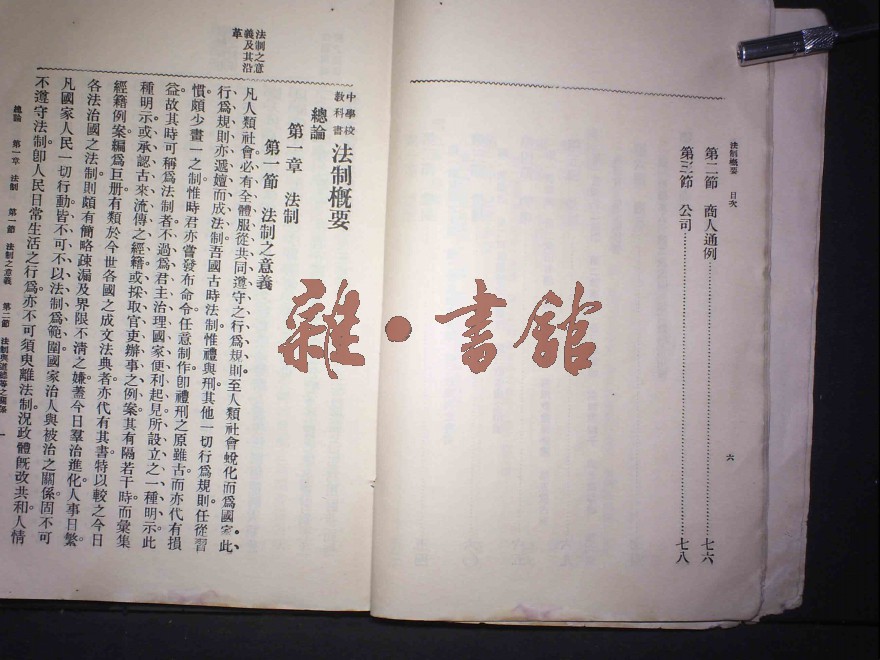 法制概要 目次
第二節 商人通例……七六
第三節 公司……七八
六
雜·書館
法制之意
義及其沿
革
中學校
教科書 法制概要
總論
第一章 法制
第一節 法制之意義
凡人類社會必有全體服從共同遵守之行爲規則至人類社會蛻化而爲國家此
行爲規則亦遞嬗而成法制吾國古時法制惟禮與刑其他一切行爲規則任從習
慣頗少畫一之制惟時君亦嘗發布命令任意制作卽禮刑之原雖古而亦代有損
益故其時可稱爲法制者不過爲君主治理國家便利起見所設立之一種明示此
種明示或承認古來流傳之經籍或採取官吏辦事之例案其有隔若干時而彙集
經籍例案編爲巨册有類於今世各國之成文法典者亦代有其書特以較之今日
各法治國之法制則頗有簡略疎漏及界限不淸之嫌蓋今日羣治進化人事日繁
凡國家人民一切行動皆不可不以法制爲範圍國家治人與被治之關係固不可
不遵守法制卽人民日常生活之行爲亦不可須臾離法制況政體旣改共和人情
總論 第一章 法制 第一節 法制之意義 第二節 法制與道德等之關係 一